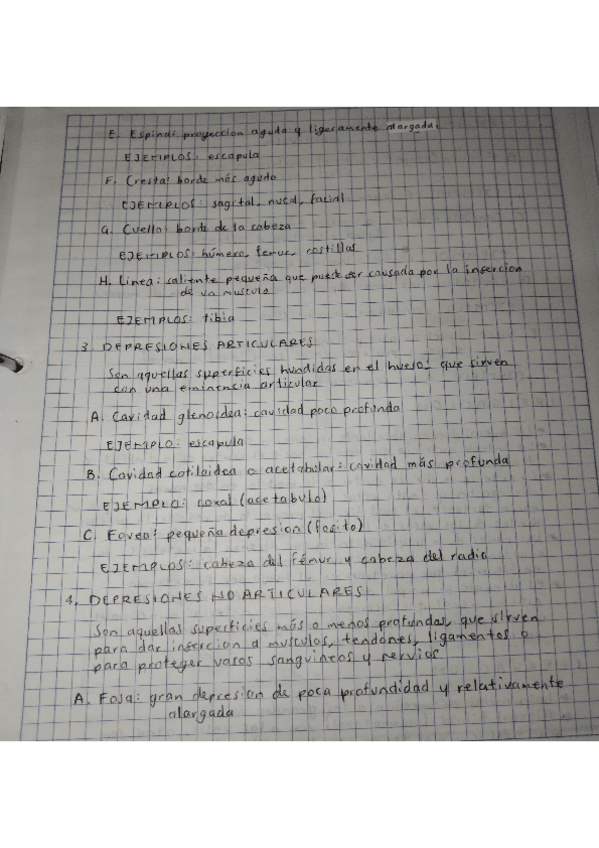 E. Espina: proyeccion aguda y ligeramente alargada.
EJEMPLOS: escapula
F. Cresta: borde más agudo
EJEMPLOS: sagital, nucal, facial
G. Cuello: borde de la cabeza
EJEMPLOS: húmero, femur, costillas
H. Linea: saliente pequeña que puede ser causada por la insercion
de un musculo
EJEMPLOS: tibia
3. DEPRESIONES ARTICULARES
Son aquellas superficies hundidas en el hueso que sirven
con una eminencia articular
A. Cavidad glenoidea: cavidad poco profunda
EJEMPLO: escapula
B. Cavidad cotiloidea o acetabular: cavidad más profunda
EJEMPLO: coxal (acetabulo)
C. Fovea: pequeña depresion (fosita)
EJEMPLOS: cabeza del fémur y cabeza del radio
4. DEPRESIONES NO ARTICULARES
Son aquellas superficies más o menos profundas, que sirven
para dar insercion a musculos, tendones, ligamentos o
para proteger vasos sanguineos y nervios
A. Fosa: gran depresion de poca profundidad y relativamente
alargada